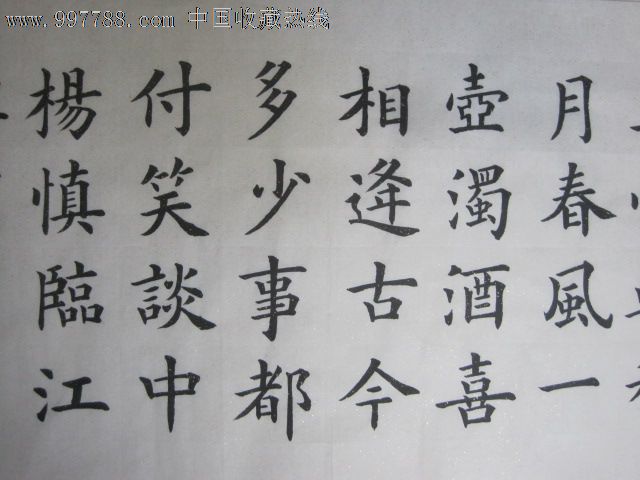 www.997788.com 中国收藏热线
月春風一
壺濁酒喜
相逢古今
多少事都
付笑談中
楊慎臨江